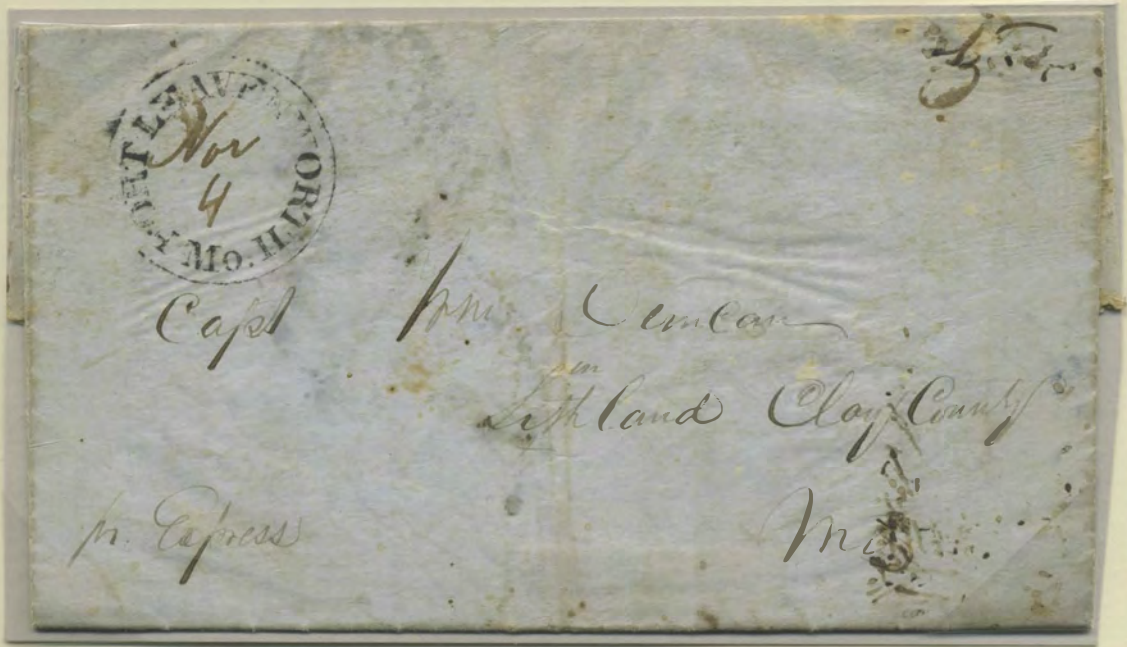 FORT LEAVENWORTH. Mo.
Nov
4
Capt Wm Duncan
Smithland Clay County
pr. Express